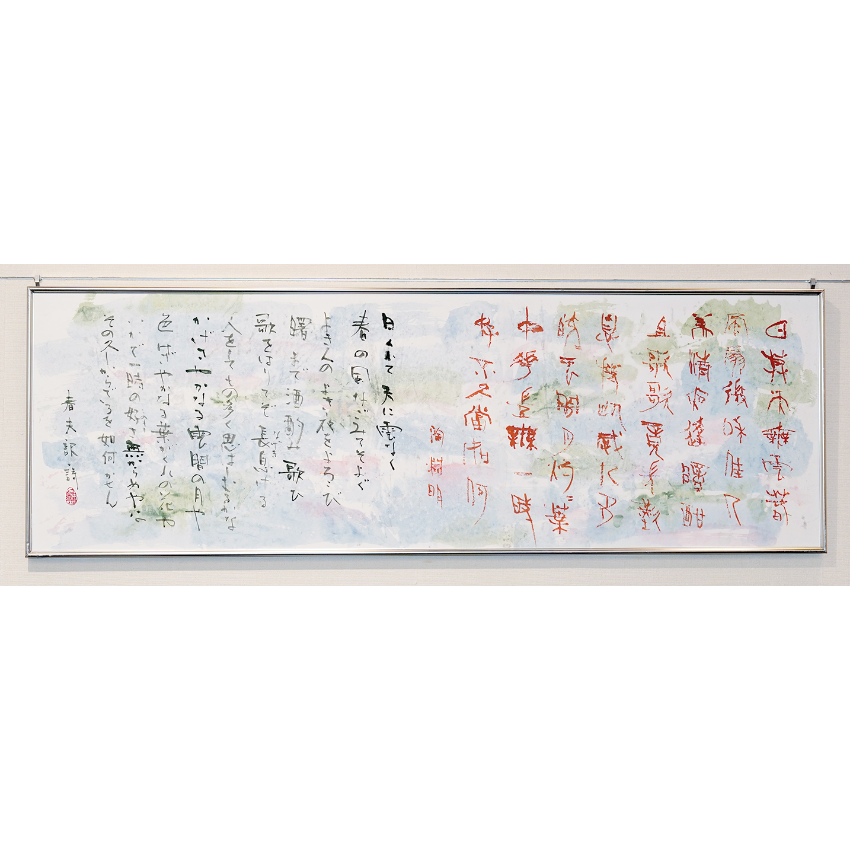 日暮天無雲春
風扇微和佳人
美清夜達曙酣
且歌歌竟長歎
息持此感人多
皎〻雲間月灼〻葉
中華豈無一時
好不久當如何
陶淵明
日くれて天に雲なく
春の風なごみてそよぐ
よき人のよき夜をよろこび
曙まで酒酌み歌ひ
歌をはりてぞ長息する
人をしてもの多く思はしむるかな
やかなる雲間の月や
色はやかなる葉がくれの花や
いかで一時の好き無からめやは
その久しからざるを如何かせん
春夫訳詩